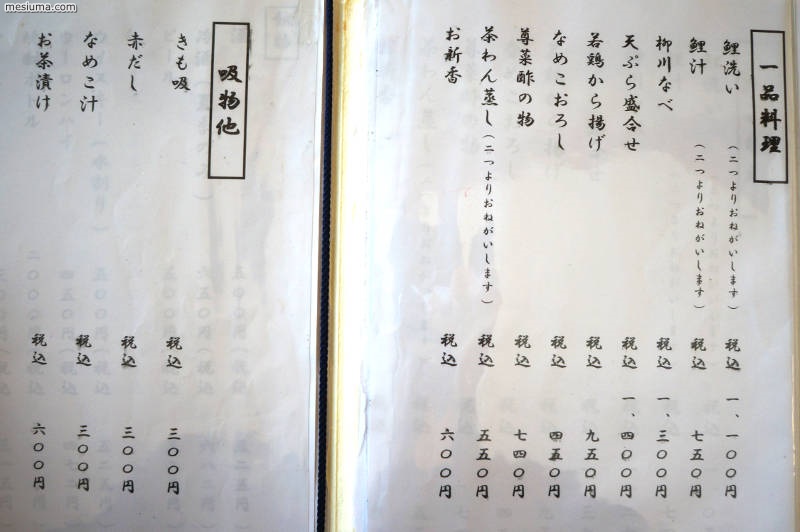 mesiuma.com
一品料理
鯉洗い（二つよりおねがいします） 税込 一、一〇〇円
鯉汁（二つよりおねがいします） 税込 七五〇円
柳川なべ 税込 一、三〇〇円
天ぷら盛合せ 税込 一、四〇〇円
若鶏から揚げ 税込 九五〇円
なめこおろし 税込 四五〇円
蓴菜酢の物 税込 七四〇円
茶わん蒸し（二つよりおねがいします） 税込 五五〇円
お新香 税込 六〇〇円
吸物他
きも吸 税込 三〇〇円
赤だし 税込 三〇〇円
なめこ汁 税込 三〇〇円
お茶漬け 税込 六〇〇円